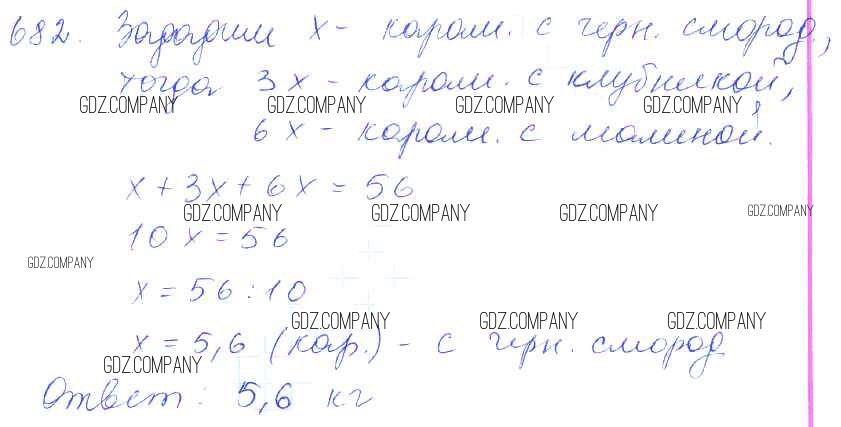 682. Зададим x - карам. с черн. смород,
тогда 3x - карам. с клубникой,
GDZ.COMPANY GDZ.COMPANY GDZ.COMPANY GDZ.COMPANY
6x - карам. с малиной.
x + 3x + 6x = 56
GDZ.COMPANY GDZ.COMPANY GDZ.COMPANY GDZ.COMPANY
10x = 56
GDZ.COMPANY
x = 56 : 10
GDZ.COMPANY GDZ.COMPANY GDZ.COMPANY
x = 5,6 (кар.) - с черн. смород
GDZ.COMPANY
Ответ: 5,6 кг